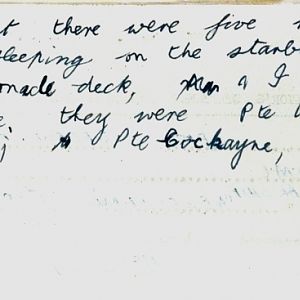 t there were five
leeping on the starb
onade deck, I
they were Pte
Pte Cockayne,